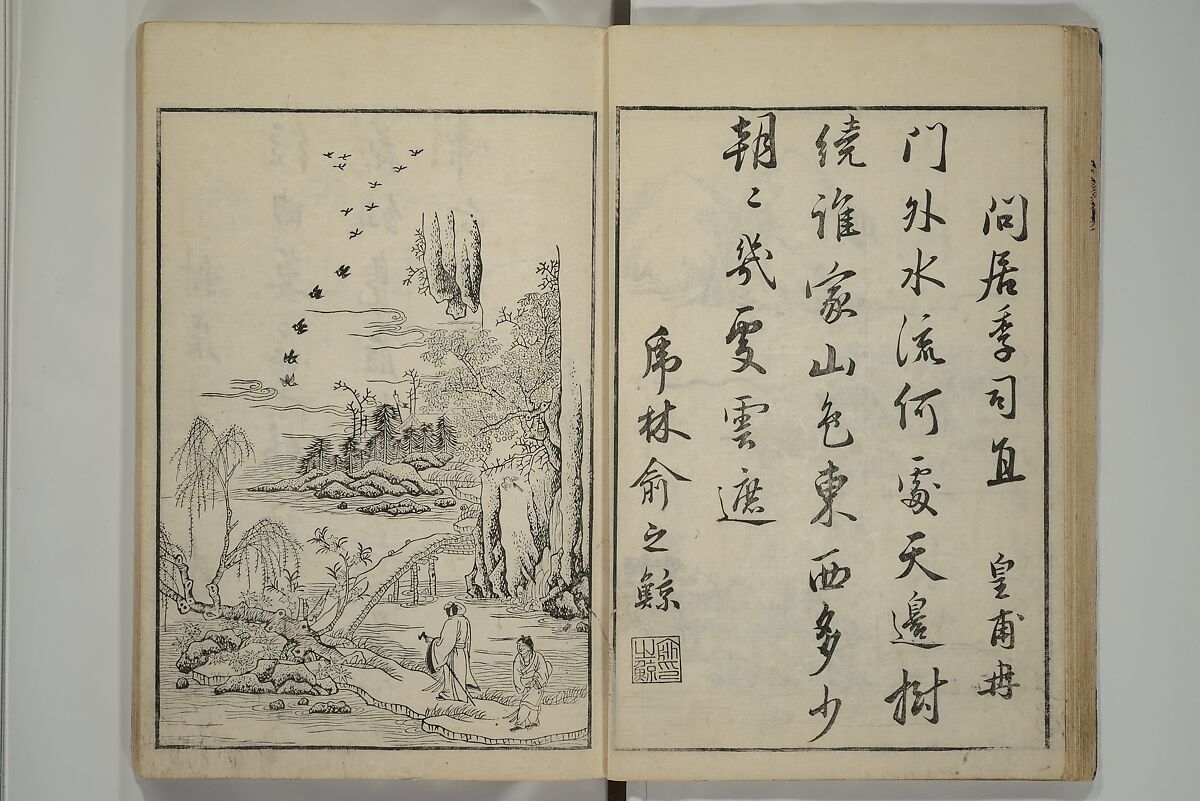 問居季司直　皇甫冉
門外水流何處天邊樹
繞誰家山色東西多少
朝〻幾度雲遮
虎林俞之鯨